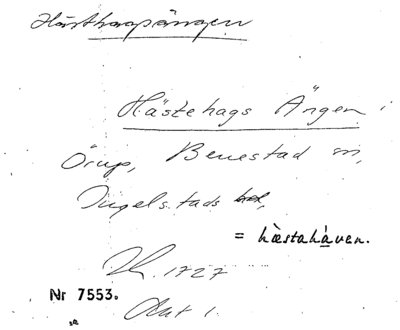 Hästhagsängen
Hästehags Ängen
Örup, Benestad sn,
Ingelstads hd,
= hæstahàven.
1727
Nr 7553.
Akt 1.